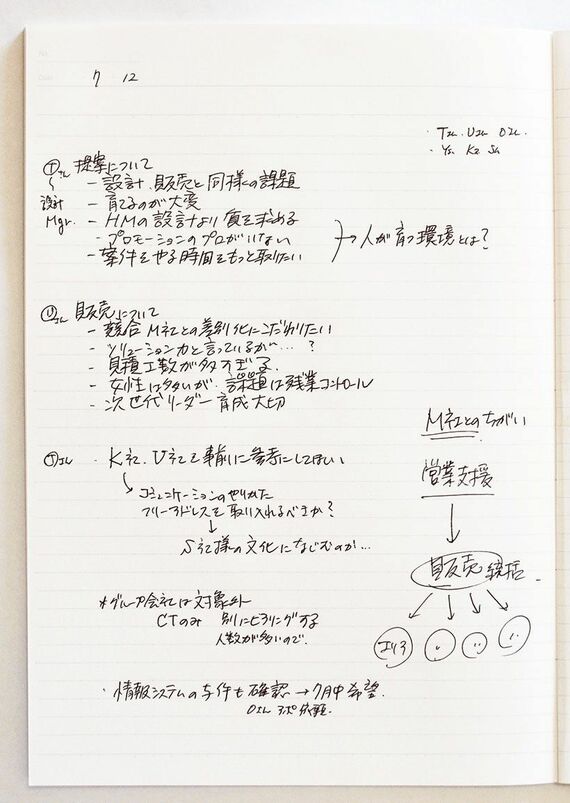 7 12
・Tさん Uさん Oさん
・Ys Ke Su
Tさん 提案について
設計Mgr.
- 設計、販売と同様の課題
- 育てるのが大変
- HMの設計より質を求める
- プロモーションのプロがいない
- 案件をやる時間をもっと取りたい
→人が育つ環境とは?
Uさん 販売について
- 競合M社との差別化にこだわりたい
- ソリューション力と言っているが…?
- 見積工数が多すぎる
- 女性は多いが、課題は残業コントロール
- 次世代リーダー育成大切
・K社、U社を事前に参考にしてほしい
コミュニケーションのやりかた
フリーアドレスを取り入れるべきか?
↓
S社様の文化になじむのか…
*グループ会社は対象外
CTのみ 別にヒアリングする
人数が多いので、
・情報システムの与件も確認→7月中希望.
Oさん アポ依頼.
M社とのちがい
営業支援
↓
販売統括
エリア